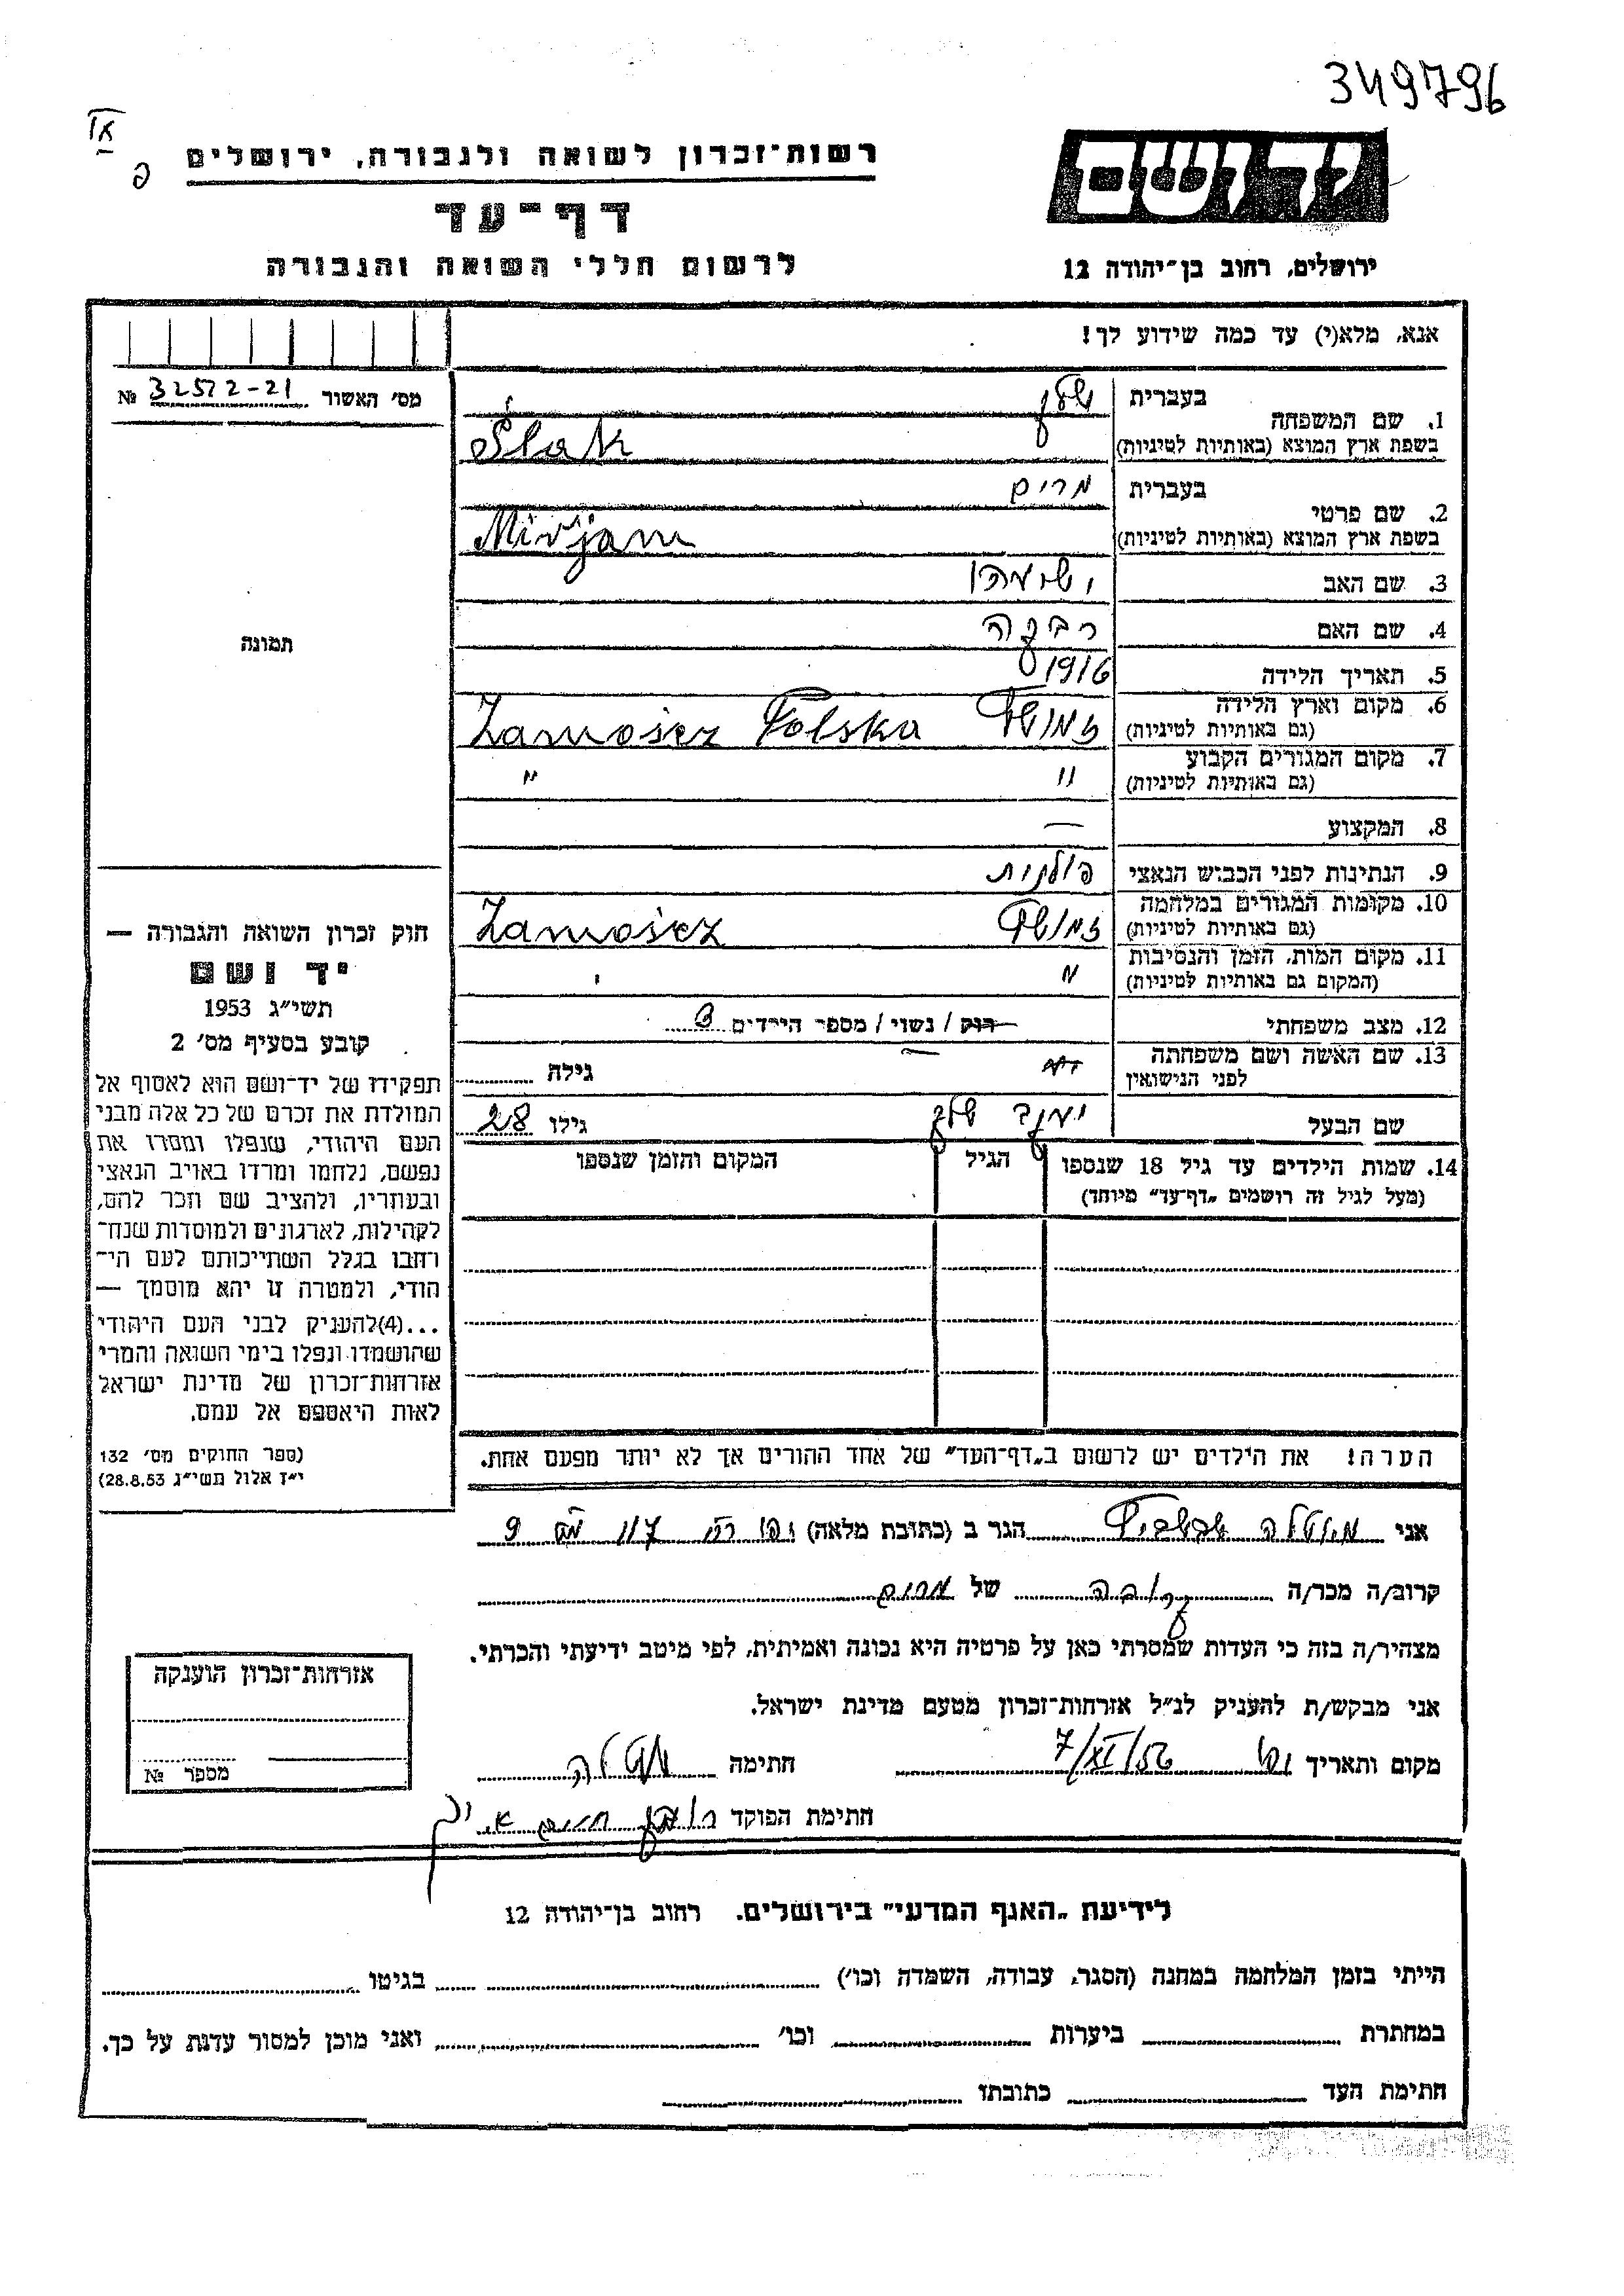 349796
רשות־זכרון לשואה ולגבורה, ירושלים
דף־עד
לרשום חללי השואה והגבורה
יד ושם
ירושלים, רחוב בן־יהודה 12
אנא, מלא(י) עד כמה שידוע לך!
מס׳ האשור № 32522-21
תמונה
חוק זכרון השואה והגבורה —
יד ושם
תשי״ג 1953
קובע בסעיף מס׳ 2
תפקידו של יד־ושם הוא לאסוף אל
המולדת את זכרם של כל אלה מבני
העם היהודי, שנפלו ומסרו את
נפשם, נלחמו ומרדו באויב הנאצי
ובעוזריו, ולהציב שם וזכר להם,
לקהילות, לארגונים ולמוסדות שנח־
רחבו בגלל השתייכותם לעם הי־
הודי, ולמטרה זו יהא מוסמך —
...(4)להעניק לבני העם היהודי
שהושמדו ונפלו בימי השואה והמרי
אזרחות־זכרון של מדינת ישראל
לאות היאספם אל עמם.
(ספר החוקים מס׳ 132
י״ז אלול תשי״ג 28.8.53)
1. שם המשפחה
בעברית
בשפת ארץ המוצא (באותיות לטיניות) Ślak
2. שם פרטי
בעברית מרים
בשפת ארץ המוצא (באותיות לטיניות) Mirjam
3. שם האב ישעיהו
4. שם האם רבקה
5. תאריך הלידה 1916
6. מקום וארץ הלידה
(גם באותיות לטיניות) זמושץ Zamośez Polska
7. מקום המגורים הקבוע
(גם באותיות לטיניות) " "
8. המקצוע —
9. הנתינות לפני הכבוש הנאצי פולנית
10. מקומות המגורים במלחמה
(גם באותיות לטיניות) זמושץ Zamośez
11. מקום המות, הזמן והנסיבות
(המקום גם באותיות לטיניות) "
12. מצב משפחתי רווק / נשוי / מספר הילדים 3
13. שם האשה ושם משפחתה
לפני הנישואין גילה
שם הבעל גילו 28
14. שמות הילדים עד גיל 18 שנספו הגיל המקום והזמן שנספו
(מעל לגיל זה רושמים „דף־עד״ מיוחד)
הערה! את הילדים יש לרשום ב„דף־העד״ של אחד ההורים אך לא יותר מפעם אחת.
אני הגר ב (כתובת מלאה)
קרוב/ה מכר/ה קרובה של מרים
מצהיר/ה בזה כי העדות שמסרתי כאן על פרטיה היא נכונה ואמיתית, לפי מיטב ידיעתי והכרתי.
אני מבקש/ת להעניק לנ״ל אזרחות־זכרון מטעם מדינת ישראל.
מקום ותאריך 7/XI/56 חתימה
חתימת הפוקד
אזרחות־זכרון הוענקה
מספר №
לידיעת „האגף המדעי״ בירושלים. רחוב בן־יהודה 12
הייתי בזמן המלחמה במחנה (הסגר, עבודה, השמדה וכו׳) בגיטו
במחתרת ביערות וכו׳ ואני מוכן למסור עדות על כך.
חתימת העד כתובתו